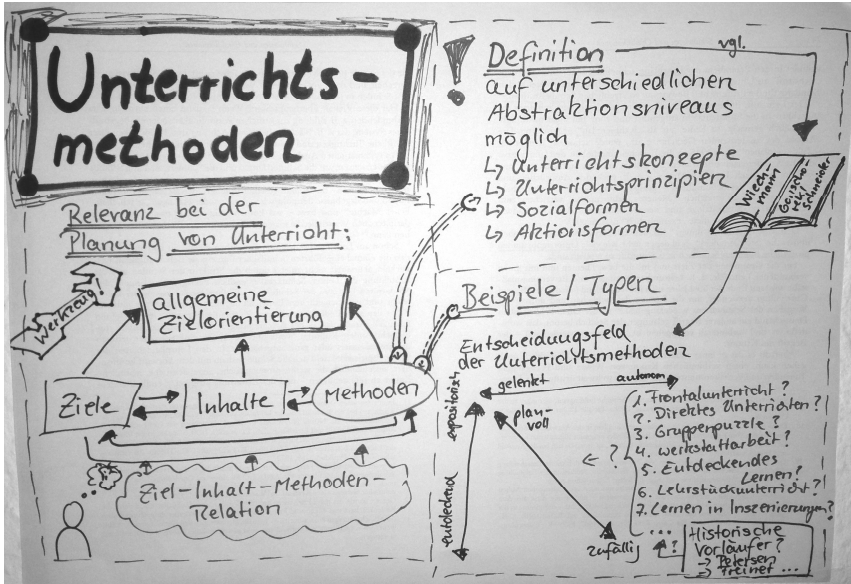 Unterrichts-
methoden
Relevanz bei der
Planung von Unterricht:
Werkzeug!
allgemeine
Zielorientierung
Ziele
Inhalte
Methoden
Ziel-Inhalt-Methoden-
Relation
!
Definition
vgl.
auf unterschiedlichen
Abstraktionsniveaus
möglich
↳ Unterrichtskonzepte
↳ Unterrichtsprinzipien
↳ Sozialformen
↳ Aktionsformen
Wiech-
mann
Schneider
Beispiele / Typen
Entscheidungsfeld
der Unterrichtsmethoden
gelenkt
autonom
expositorisch
entdeckend
plan-
voll
zufällig
← ?
1. Frontalunterricht?
2. Direktes Unterrichten?
3. Gruppenpuzzle?
4. Werkstattarbeit?
5. Entdeckendes
Lernen?
6. Lehrstückunterricht?
7. Lernen in Inszenierungen?
...
?
Historische
Vorläufer?
→ Petersen
→ Freinet ...